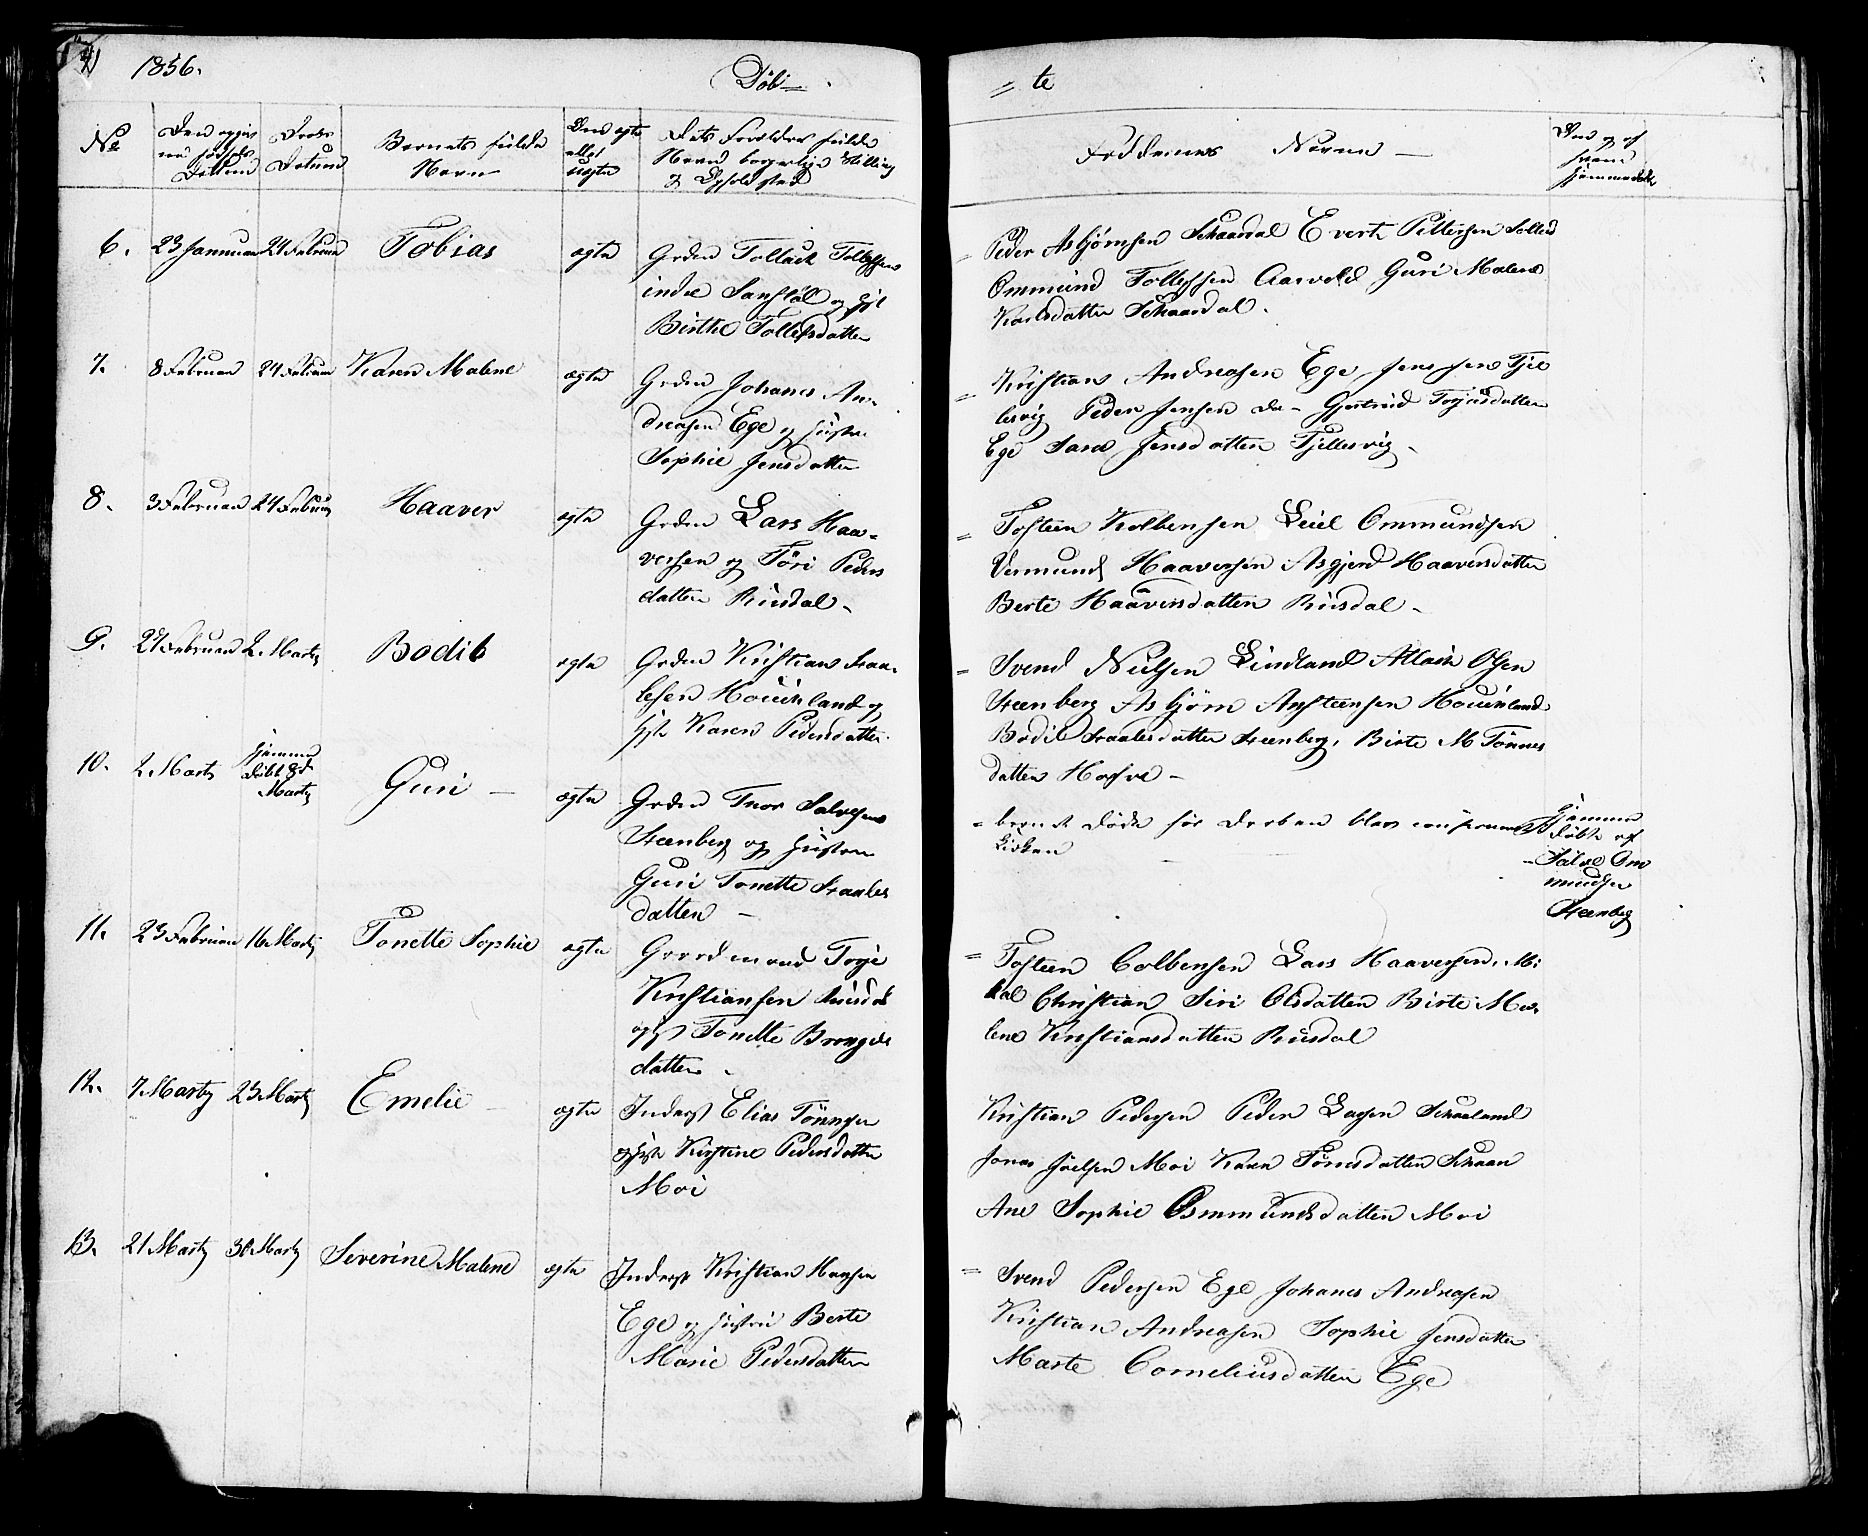 1856.
Døb=
= te
No
Daabs
Datum
Barnets fulde
Navn
ægte
eller
uægte
Dets Forældres fulde
Navn borgerlige Stilling
& Opholdsted
Faddernes Navne —
6.
23 Januar
24 Februar
Tobias
ægte
Grdm Tollack Tollefsen
Birthe Tollefsdatter
Peder Asbjørnsen Skaardal Evert Pettersen
Ommund Tollefsen Aarvold Guri Malene
Karlsdatter Skaardal.
7.
8 Februar
24 Februar
Karen Malene
ægte
Grdm Johanes An-
dreasen Ege og Hustru
Sophie Jensdatter
Kristian Andreasen Ege Jens Jensen Tjel
lesvig Peder Jensen do- Gjertrud Torjusdatter
Ege Sara Jensdatter Tjellesvig -
8.
3 Februar
24 Februar
Haaver
ægte
Grdm Lars Haa-
versen og Töri Peders
datter Ruusdal -
Tosteen Kolbensen Leiel Ommundsen
Vermund Haaversen Asgjerd Haaversdatter
Berte Haaversdatter Ruusdal -
9.
27 Februar
2 Marts
Bodil
ægte
Grdm Kristian Traa-
lesen Houkland og
Hst Karen Pedersdatter
Svend Nielsen Lindland Atlack Olsen
Steenberg Asbjørn Aasteensen Houkland
Bodil Traalesdatter Steenberg, Birte M Tönnes
datter
10.
2 Marts
hjemme
døbt 8de
Marts
Guri —
ægte
Grdm Tnor Salvesen
Steenberg og Hustru
Guri Tonette Traales
datter —
= barnet døde før Daaben blev confirmeret i
Kirken
Hjemme
døbt af
Salve Om
mundsen
Steenberg
11.
23 Februar
16 Marts
Tonette Sophie
ægte
Gaardmand Torje
Kristiansen Ruusdal
og Hst Tonette Bronges
datter -
Tosteen Colbensen Lars Haaversen, Mi
kal Christian Siri Olsdatter Birte Ma-
lene Kristiansdatter Ruusdal
12.
7 Marts
23 Marts
Emelie
ægte
Inderst Elias Tönnesen
og Hst Kirstine Pedersdatter
Moi
Kristian Pedersen Peder Larsen Skaaland
Jonas Joelsen Moi Karen Tönnesdatter Skaar
Ane Sophie Osmundsdatter Moi
13.
21 Marts
30 Marts
Severine Malene
ægte
Inderst Kristian Hansen
Ege og Hustru Berte
Marie Pedersdatter
= Svend Pedersen Ege Johanes Andreasen
Kristian Andreasen Sophie Jensdatter
Marte Corneliusdatter Ege